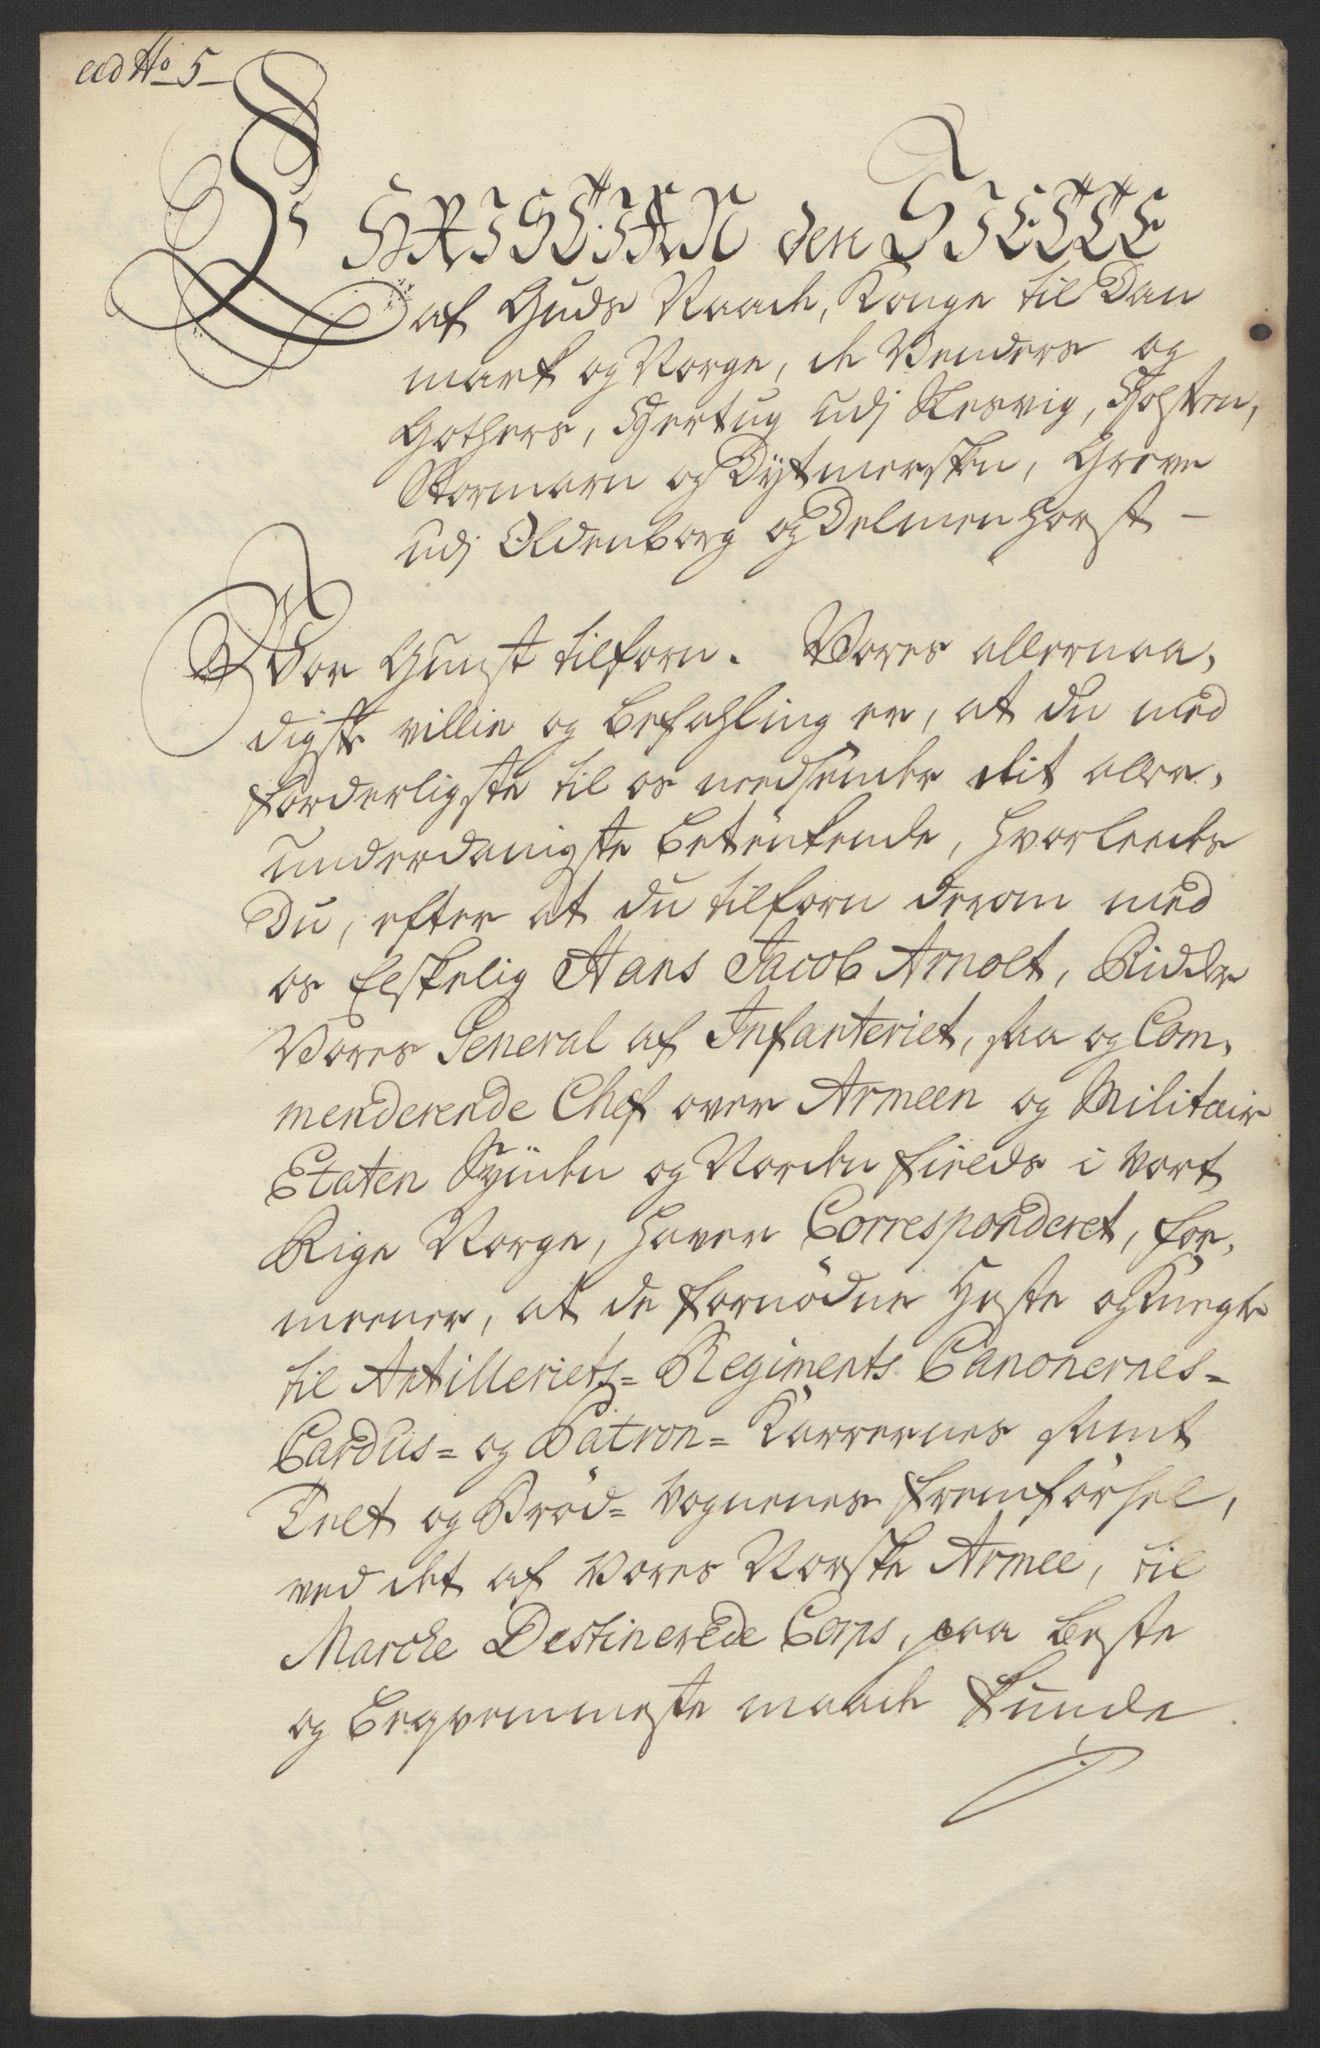 ad No 5
CHRISTIAN den SIETTE
af Guds Naade, Konge til Dan
mark og Norge, de Venders og
Gothers, Hertug udj Slesvig, Holsten,
Stormarn og Dytmersken, Greve
udj Oldenborg og Delmenhorst -
Vor Gunst tilforn. Vores allernaa,
digste villie og befahling er, at du med
forderligste til os nedsender dit aller,
underdanigste betenkende, hvorleedes
Du, efter at du tilforn derom med
os Elskelig Hans Jacob Arnolt, Ridder
Vores General af Infanteriet, saa og Com,
menderende Chef over Armeen og Militair
Etaten Synden og Norden fields i vort
Rige Norge, haver Corresponderet, for,
meener, at de fornødne Heste og Knegte
til Artilleriets= Regiments Canonernes=
Cardus= og Patron= Karrernes samt
Telt og Brød= Vognenes fremførsel,
ved det af Vores Norske Armee, til
Marche Destinerede Corps, paa beste
og beqvemmeste maade kunde